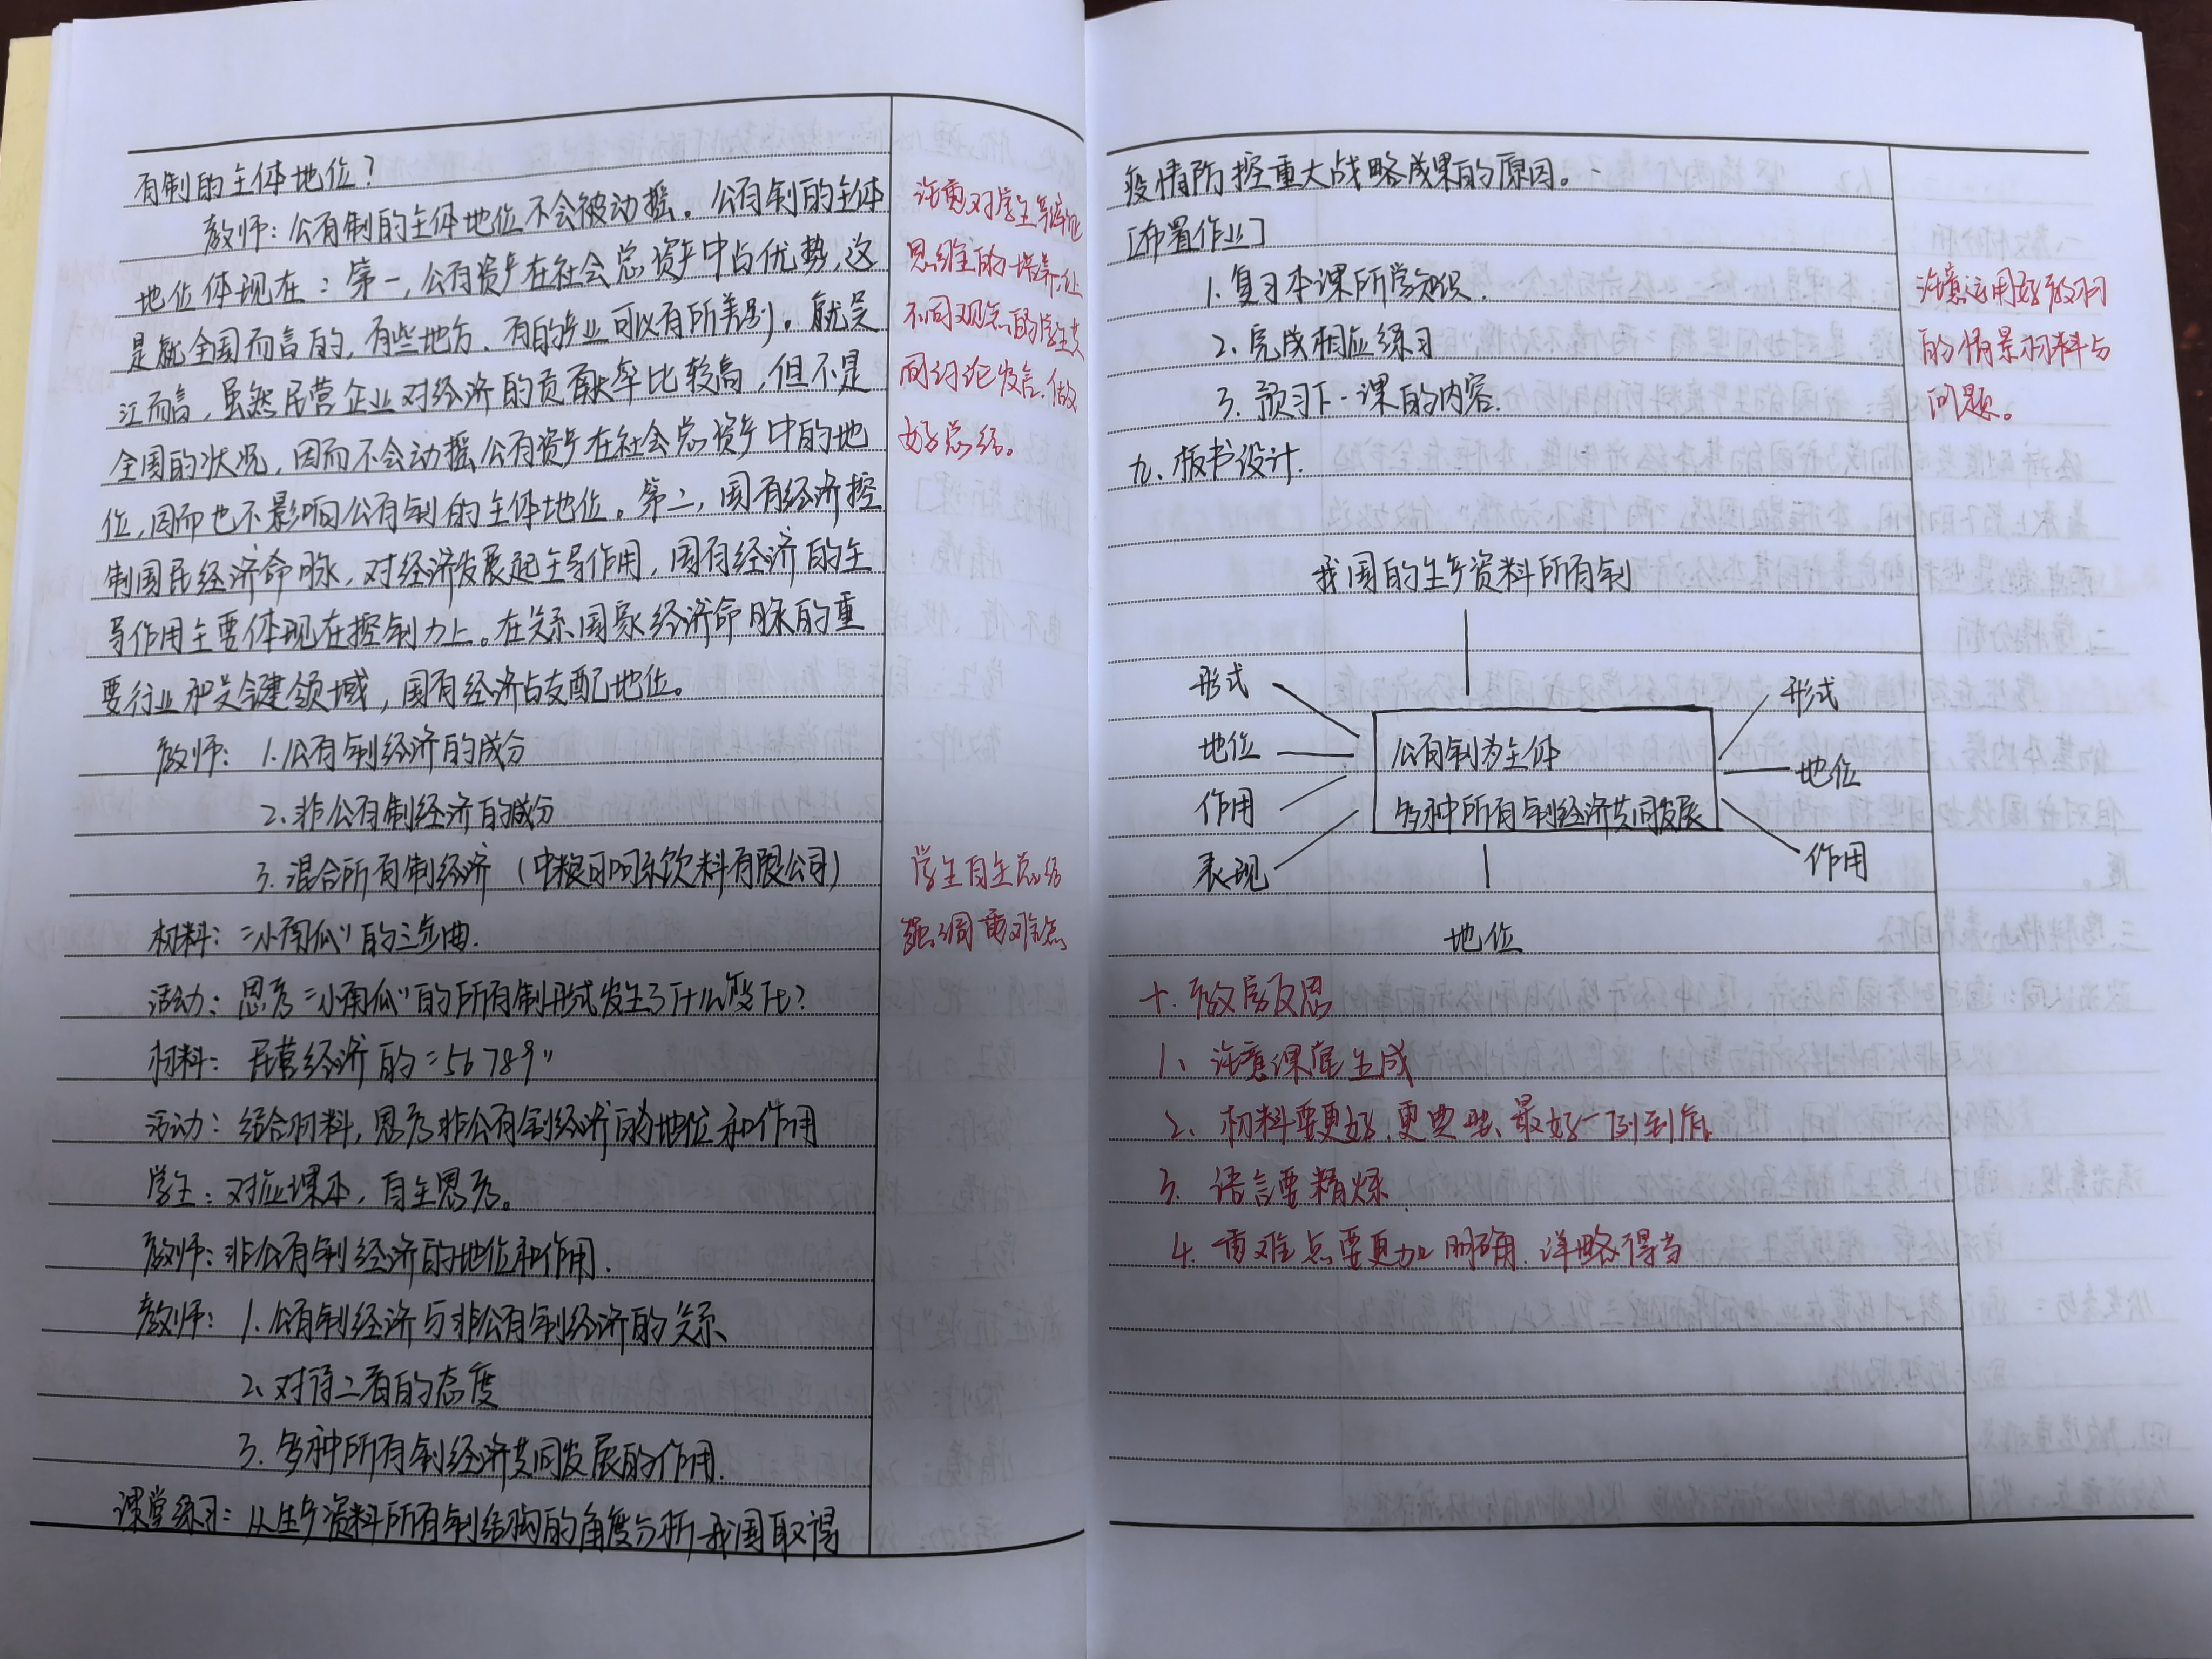 有制的主体地位?
教师:公有制的主体地位不会被动摇。公有制的主体
地位体现在:第一,公有资产在社会总资产中占优势,这
是就全国而言的,有些地方、有的产业可以有所差别。就吴
江而言,虽然民营企业对经济的贡献率比较高,但不是
全国的状况,因而不会动摇公有资产在社会总资产中的地
位,因而也不影响公有制的主体地位。第二,国有经济控
制国民经济命脉,对经济发展起主导作用,国有经济的主
导作用主要体现在控制力上。在关系国家经济命脉的重
要行业和关键领域,国有经济占支配地位。
教师: 1.公有制经济的成分
2.非公有制经济的成分
3.混合所有制经济(中粮可口可乐饮料有限公司)
材料:“小南瓜”的三步曲.
活动:思考“小南瓜”的所有制形式发生了什么变化?
材料: 民营经济的“56789”
活动:结合材料,思考非公有制经济的地位和作用
学生:对应课本,自主思考。
教师:非公有制经济的地位和作用.
教师: 1.公有制经济与非公有制经济的关系
2、对待二者的态度
3.多种所有制经济共同发展的作用.
课堂练习:从生产资料所有制结构的角度分析我国取得
注重对学生
思维的培养,让
不同观点的学生
讨论发言.做
好总结。
学生自主总结
强调重难点
疫情防控重大战略成果的原因。
[布置作业]
1.复习本课所学知识.
2、完成相应练习
3.预习下一课的内容.
九、板书设计.
注意运用好教材
的情景材料与
问题。
我国的生产资料所有制
形式
地位
作用
表现
公有制为主体
多种所有制经济共同发展
形式
地位
作用
地位
十.教后反思
1、注意课堂生成
2、材料要更好、更典型、最好一例到底
3.语言要精炼
4.重难点要更加明确.详略得当